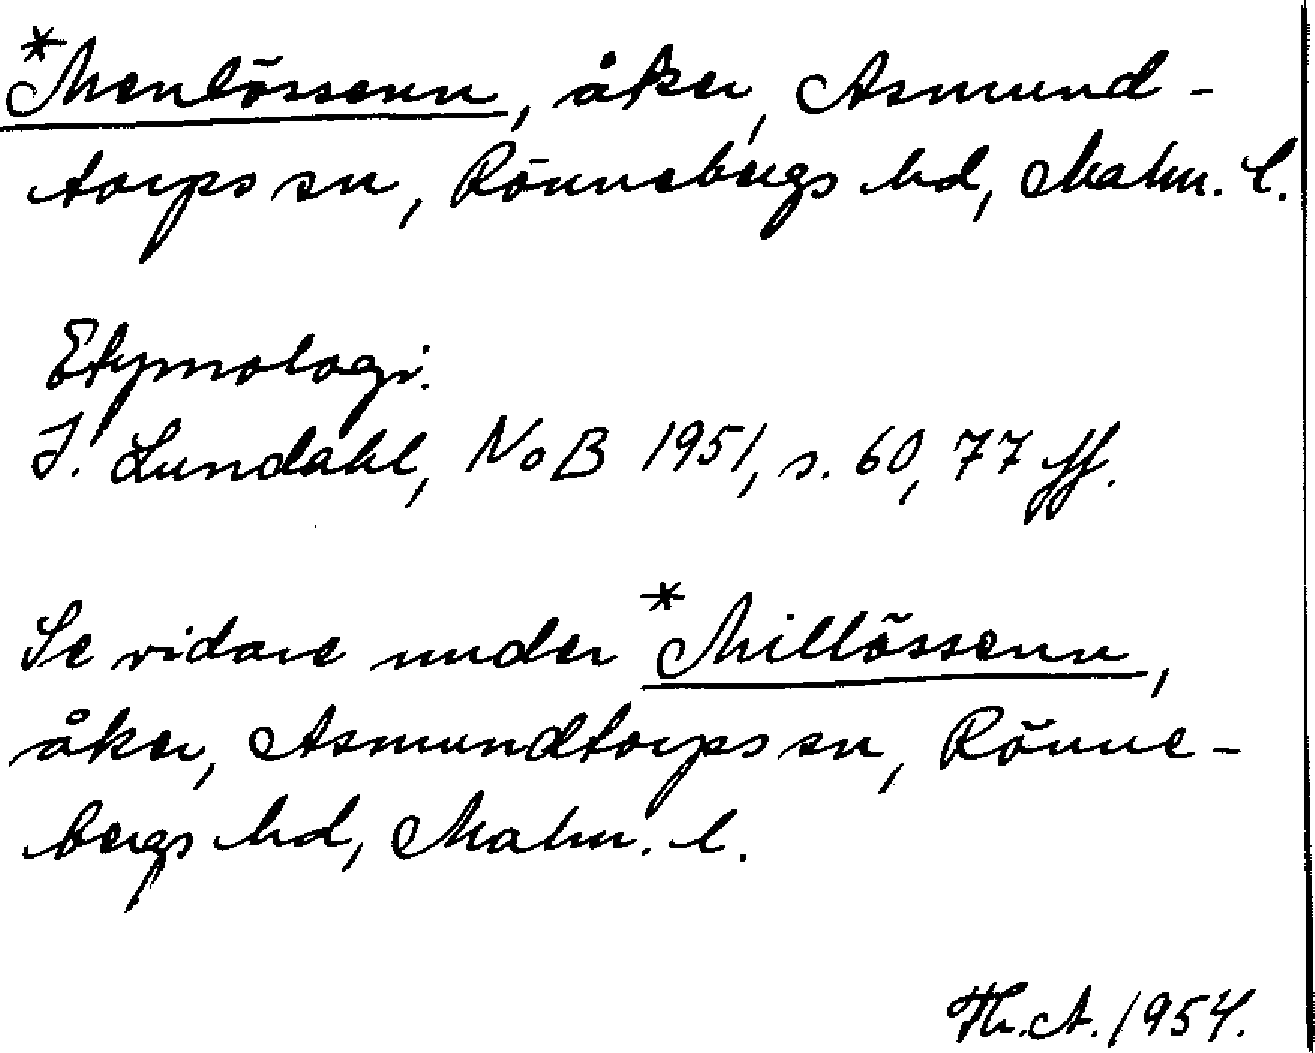 *Menlössenn, åker, Asmund-
torps sn, Rönnebergs hd, Malm. l.
Etymologi.
I. Lundahl, NoB 1951, s. 60, 77 ff.
Se vidare under *Millössenn,
åker, Asmundtorps sn, Rönne-
bergs hd, Malm. l.
Th. A. 1954.